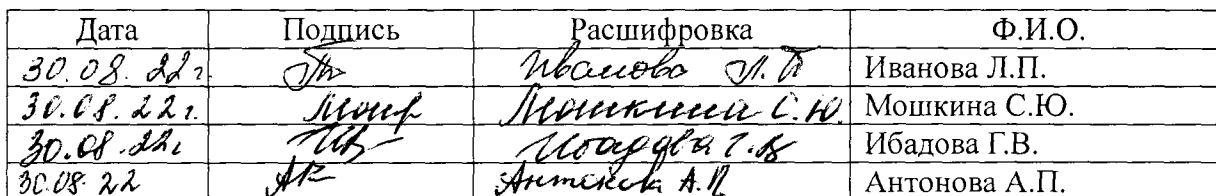 Дата Подпись Расшифровка Ф.И.О.
30.08.22г. Иванова Л.П Иванова Л.П.
30.08.22г. Мошк Мошкина С.Ю. Мошкина С.Ю.
30.08.22г Ибадова Г.В Ибадова Г.В.
30.08.22 Антонова А.П Антонова А.П.